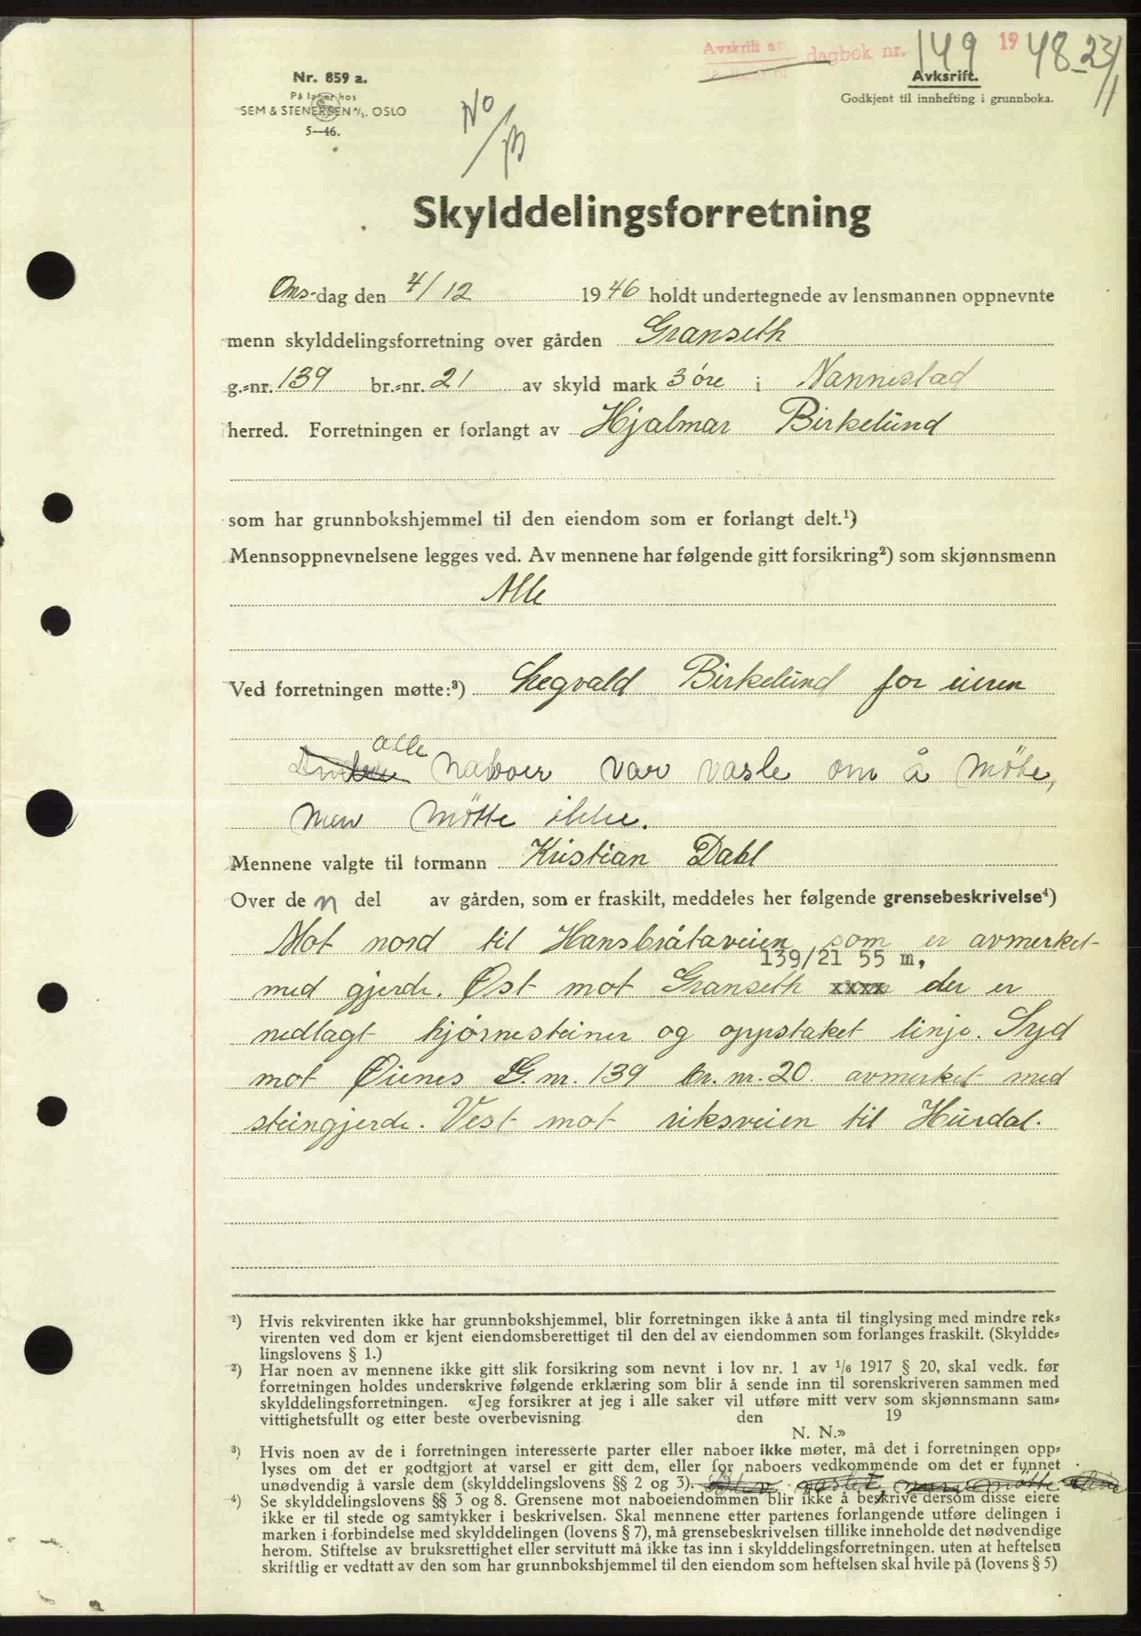 Avskrift av dagbok nr. 149 1948 - 23/1
Avksrift.
Godkjent til innhefting i grunnboka.
Nr. 859 a.
På lager hos
SEM & STENERSEN A/S, OSLO
5—46.
No
Skylddelingsforretning
Ons-dag den 4/12 1946 holdt undertegnede av lensmannen oppnevnte
menn skylddelingsforretning over gården Granseth
g.-nr. 139 br.-nr. 21 av skyld mark 3 öre i Nannestad
herred. Forretningen er forlangt av Hjalmar Birkelund
som har grunnbokshjemmel til den eiendom som er forlangt delt.¹)
Mennsoppnevnelsene legges ved. Av mennene har følgende gitt forsikring²) som skjønnsmenn
Alle
Ved forretningen møtte:³) Segvald Birkelund for eieren
alle
naboer var varsle om å möte,
men mötte ikke.
Mennene valgte til formann Kristian Dahl
Over den del av gården, som er fraskilt, meddeles her følgende grensebeskrivelse⁴)
Mot nord til Hansbråtaveien som er avmerket
139/21 55 m,
med gjerde. Øst mot Granseth xxxx der er
nedlagt hjørnesteiner og oppstaket linje. Syd
mot Øienes G. nr. 139 br. nr. 20. avmerket med
steingjerde. Vest mot riksveien til Hurdal.
¹) Hvis rekvirenten ikke har grunnbokshjemmel, blir forretningen ikke å anta til tinglysing med mindre rek-
virenten ved dom er kjent eiendomsberettiget til den del av eiendommen som forlanges fraskilt. (Skyldde-
lingslovens § 1.)
²) Har noen av mennene ikke gitt slik forsikring som nevnt i lov nr. 1 av 1/6 1917 § 20, skal vedk. før
forretningen holdes underskrive følgende erklæring som blir å sende inn til sorenskriveren sammen med
skylddelingsforretningen. «Jeg forsikrer at jeg i alle saker vil utføre mitt verv som skjønnsmann sam-
vittighetsfullt og etter beste overbevisning den 19
N. N.»
³) Hvis noen av de i forretningen interesserte parter eller naboer ikke møter, må det i forretningen opp-
lyses om det er godtgjort at varsel er gitt dem, eller for naboers vedkommende om det er funnet
unødvendig å varsle dem (skylddelingslovens §§ 2 og 3).
⁴) Se skylddelingslovens §§ 3 og 8. Grensene mot naboeiendommen blir ikke å beskrive dersom disse eiere
ikke er til stede og samtykker i beskrivelsen. Skal mennene etter partenes forlangende utføre delingen i
marken i forbindelse med skylddelingen (lovens § 7), må grensebeskrivelsen tillike inneholde det nødvendige
herom. Stiftelse av bruksrettighet eller servitutt må ikke tas inn i skylddelingsforretningen. uten at heftelsen
skriftlig er vedtatt av den som har grunnbokshjemmel til den eiendom som heftelsen skal hvile på (lovens § 5)